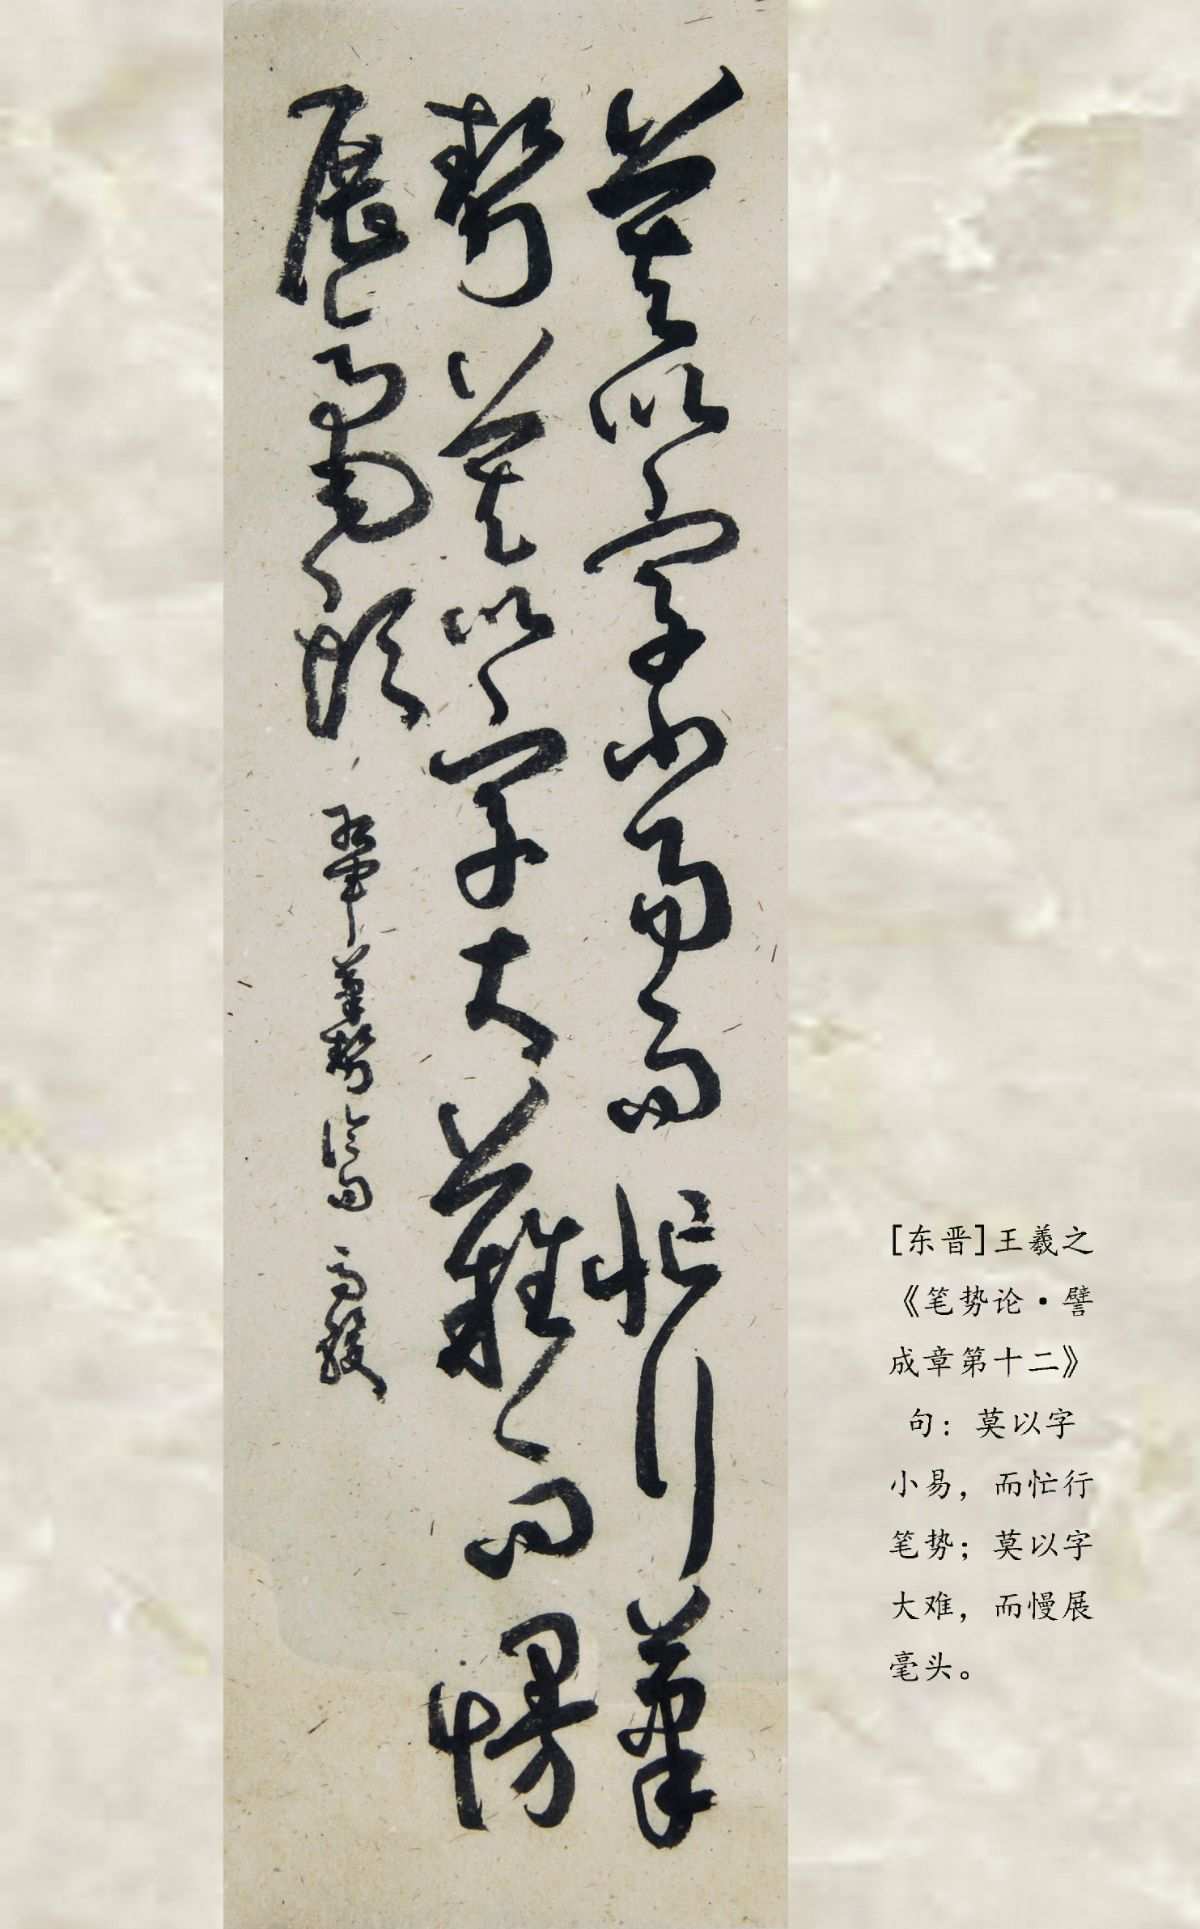 莫以字小易而忙行筆
勢莫以字大難而慢
展毫頭 右軍筆勢論句
[东晋]王羲之
《笔势论·譬
成章第十二》
句：莫以字
小易，而忙行
笔势；莫以字
大难，而慢展
毫头。